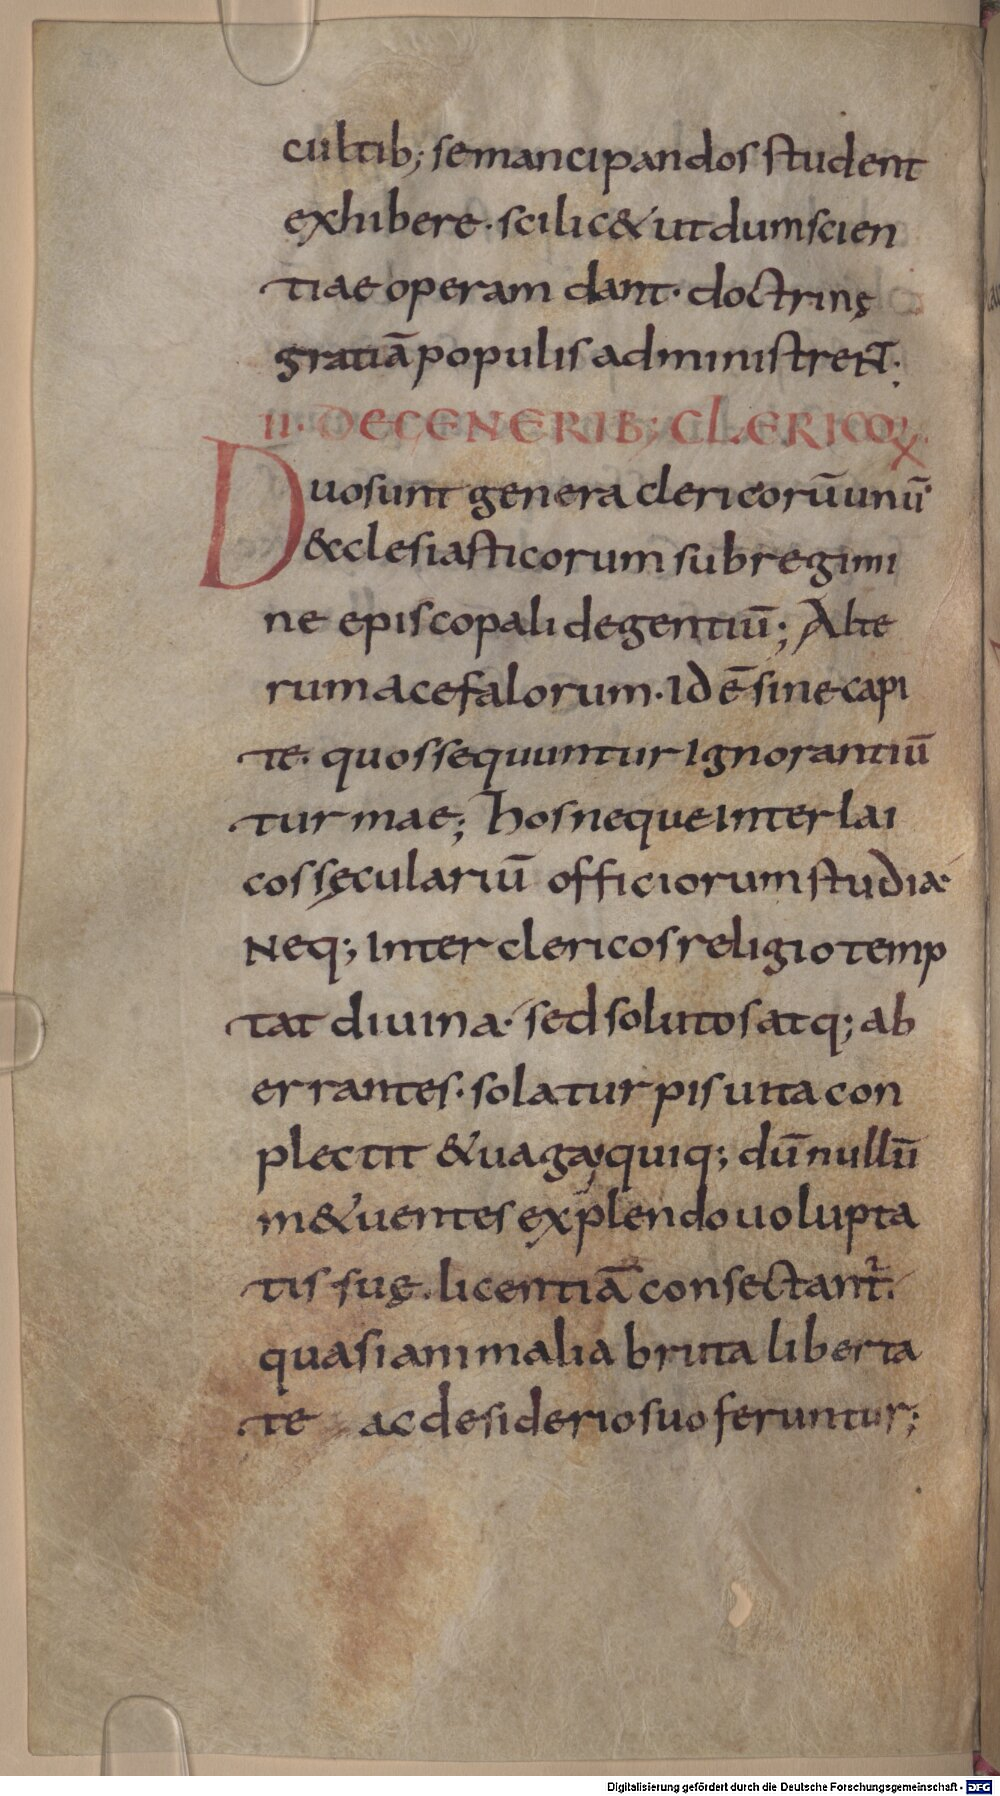 cultib; se mancipandos student
exhibere· scilic& ut dum scien
tiae operam dant· doctrinę
gratiā populis administreNT·
II· DE GENERIB; CLERICOꝜ·
Duo sunt genera clericorū unū
&cclesiasticorum sub regimi
ne episcopali degentiū; Alte
rum acefalorum· Id ē sine capi
te· quos sequuntur ignorantiū
turmae; hos neque inter lai
cos sęculariū officiorum studia·
Neq; inter clericos religio temp
tat diuina· sed solutos atq; ab
errantes· sola turpis uita con
plectit & uaga, quiq; dū nullū
m&uentes explendo uolupta
tis suę· licentiā consectant᷑·
quasi animalia bruta liberta
te ac desiderio suo feruntur;
Digitalisierung gefördert durch die Deutsche Forschungsgemeinschaft - DFG